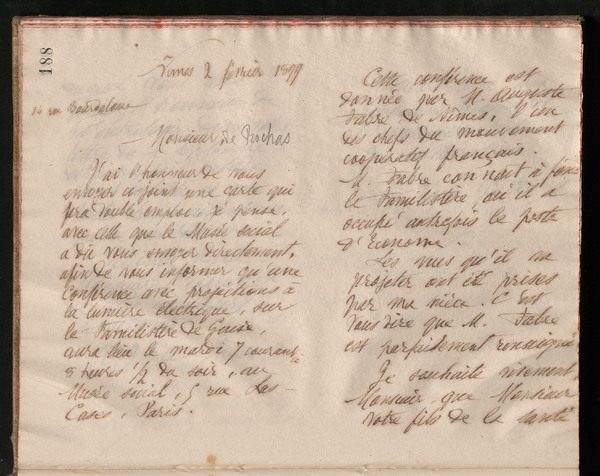 188
Nîmes 2 février 1899
14 rue Bourdaloue
Monsieur de Rochas
J'ai l'honneur de vous
envoyer ci joint une carte qui
fera double emploi, je pense,
avec celle que le Musée social
a dû vous envoyer directement,
afin de vous informer qu'une
Conférence avec projections à
la lumière électrique, sur
le Familistère de Guise,
aura lieu le mardi 7 courant à
8 heures 1/2 du soir, au
Musée social, 5 rue Las-
Cases, Paris.
Cette conférence est
donnée par M. Auguste
Fabre de Nîmes, l'un
des chefs du mouvement
coopératif français.
M. Fabre connait à fond
le Familistère, où il a
occupé autrefois le poste
d'Econome.
Les vues qu'il va
projeter ont été prises
par ma nièce. C'est
vous dire que M. Fabre
est parfaitement renseigné.
Je souhaite vivement,
Monsieur, que Monsieur
votre fils de la santé